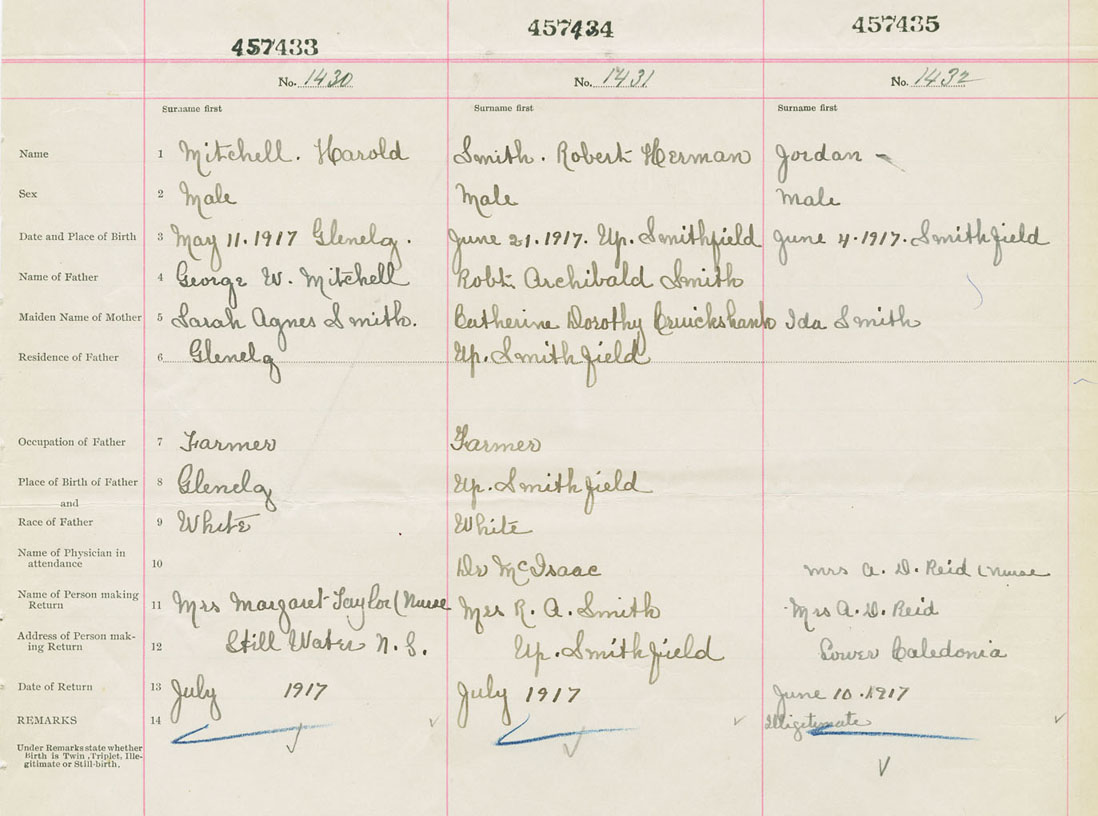 457433 457434 457435
No. 1430 No. 1431 No. 1432
Surname first Surname first Surname first
Name 1 Mitchell. Harold Smith. Robert Herman Jordan -
Sex 2 Male Male Male
Date and Place of Birth 3 May 11. 1917 Glenelg. June 21. 1917. Up. Smithfield June 4. 1917. Smithfield
Name of Father 4 George W. Mitchell Robt. Archibald Smith
Maiden Name of Mother 5 Sarah Agnes Smith. Catherine Dorothy Cruickshank Ida Smith
Residence of Father 6 Glenelg Up. Smithfield
Occupation of Father 7 Farmer Farmer
Place of Birth of Father 8 Glenelg Up. Smithfield
and
Race of Father 9 White White
Name of Physician in
attendance 10 Dr McIsaac Mrs A. D. Reid (Nurse
Name of Person making
Return 11 Mrs Margaret Taylor (Nurse Mrs R. A. Smith Mrs A. D. Reid
Address of Person mak-
ing Return 12 Still Water N. S. Up. Smithfield Lower Caledonia
Date of Return 13 July 1917 July 1917 June 10. 1917
REMARKS 14 Illigitimate
Under Remarks state whether
Birth is Twin, Triplet, Ille-
gitimate or Still-birth.